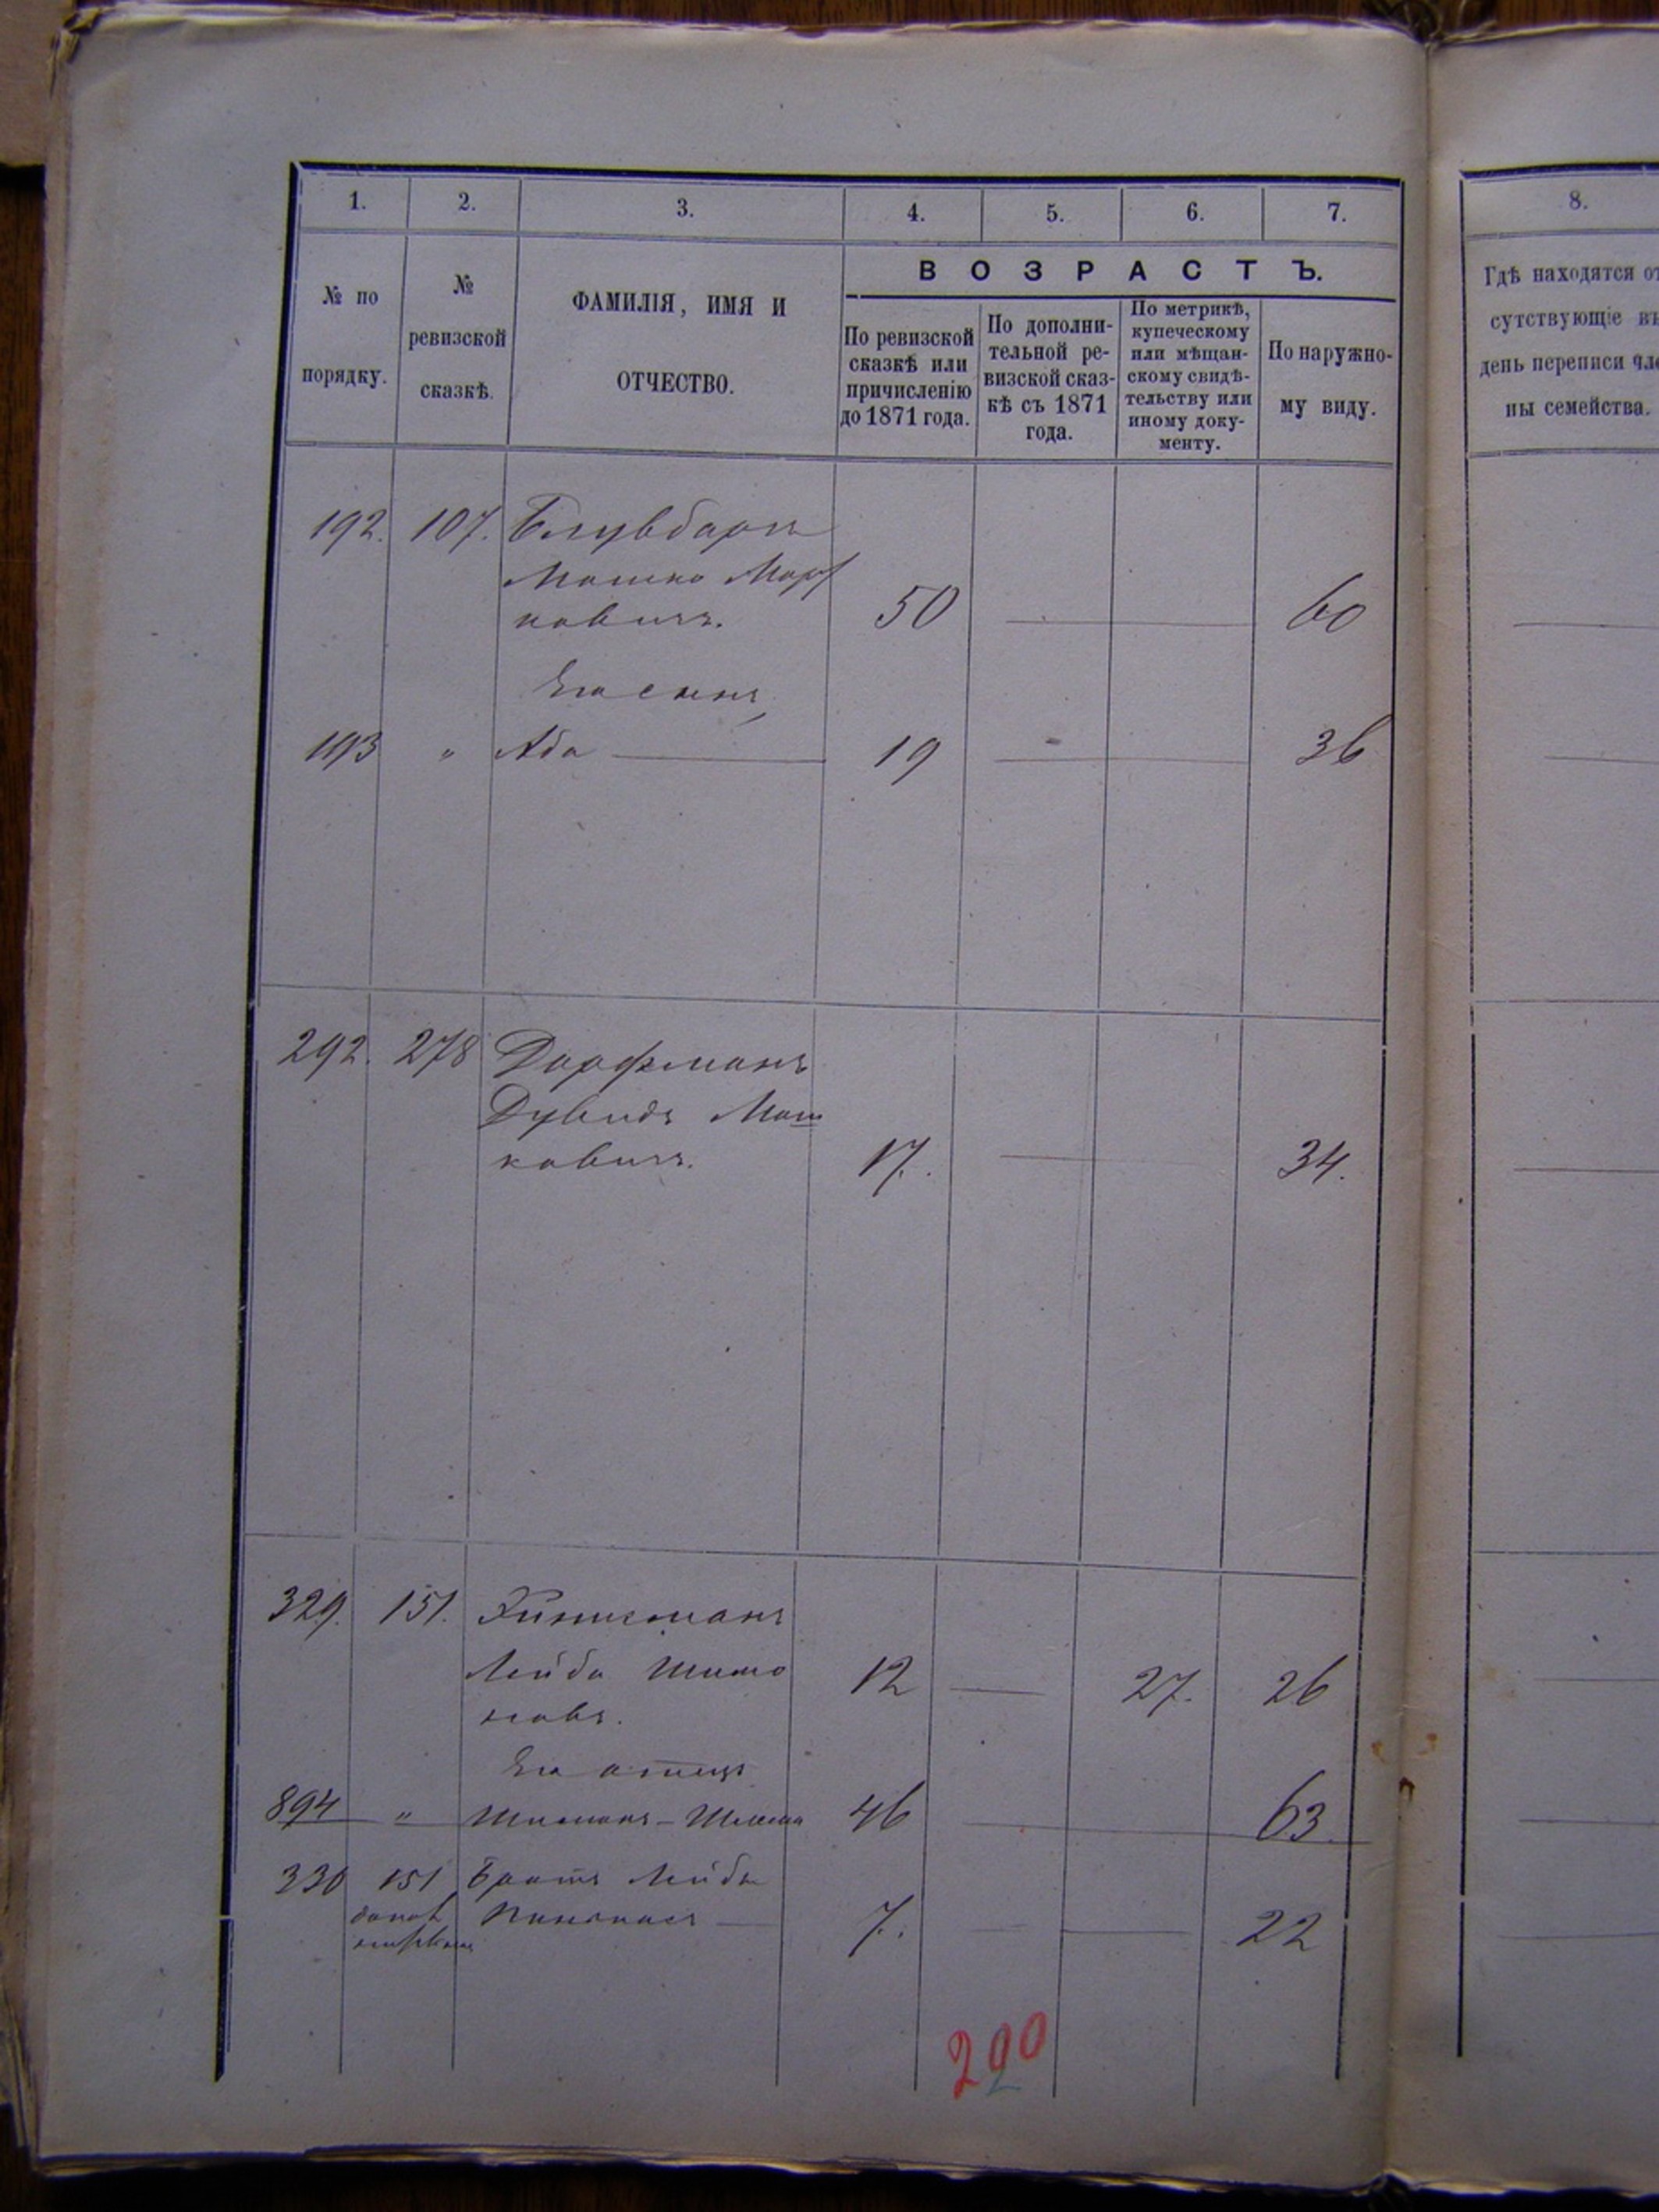 1.
2.
3.
4.
5.
6.
7.
8.
№ по
порядку.
№
ревизской
сказкѣ.
ФАМИЛІЯ, ИМЯ И
ОТЧЕСТВО.
ВОЗРАСТЪ.
По ревизской
сказкѣ или
причисленію
до 1871 года.
По дополни-
тельной ре-
визской сказ-
кѣ съ 1871
года.
По метрикѣ,
купеческому
или мѣщан-
скому свидѣ-
тельству или
иному доку-
менту.
По наружно-
му виду.
Гдѣ находятся от
сутствующіе въ
день переписи чле
ны семейства.
192. 107.
Мошко Мор
ковичъ. 50 — — 60
Его сынъ,
193 " Аба — 19 — — 36
292. 278 Дорфманъ
Дувидъ Мош
ковичъ. 17. — 34.
329. 151.
Лейба Шимо
новъ. 12 — 27. 26
Его отецъ
894 " Шимонъ - 46 — 63.
330 151 Братъ Лейбы
7. — — 22
290